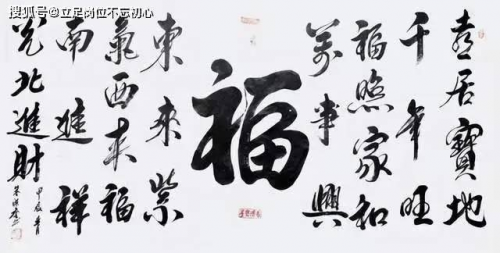 搜狐号@立足岗位不忘初心
喜居寶地
千年旺
福照家和
萬事興
福
東來紫
氣西来福
南進祥
光北進財
甲辰